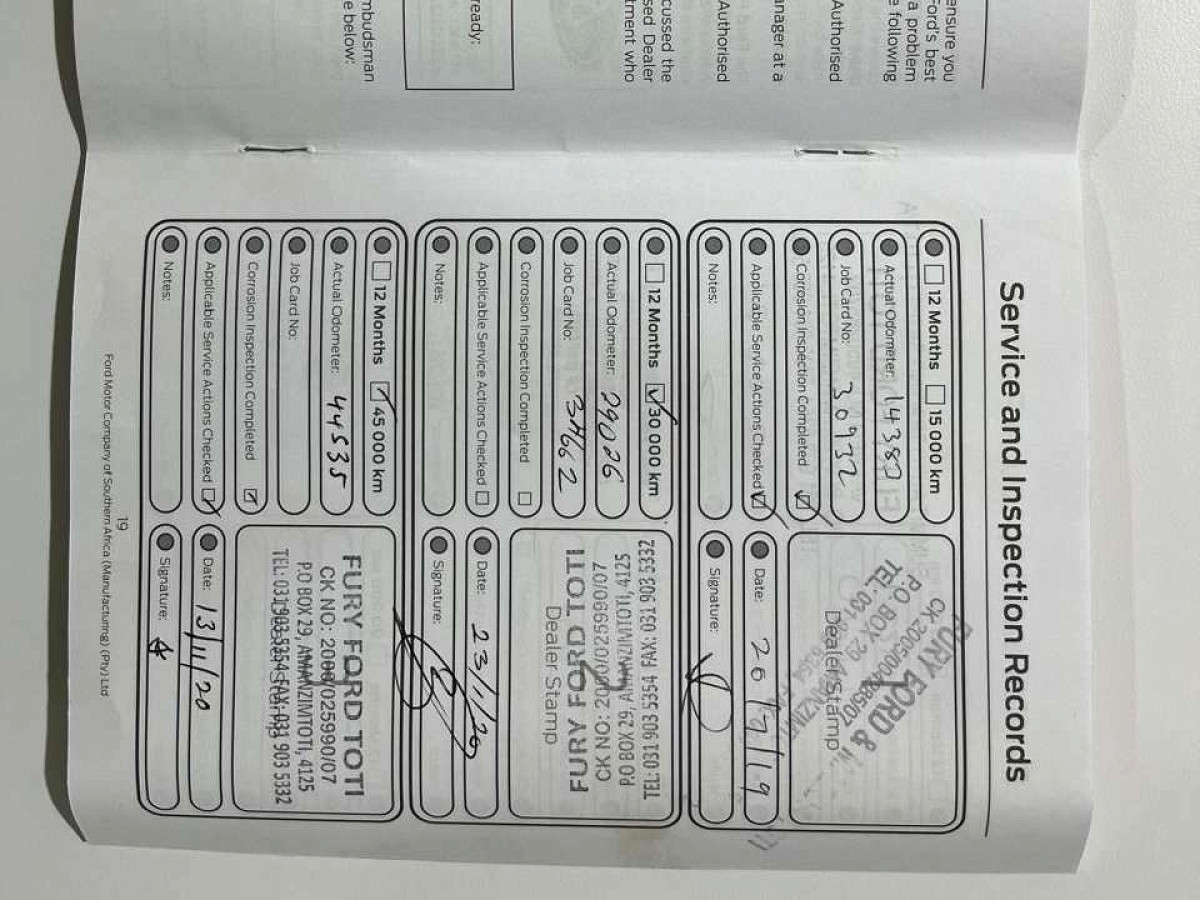 ensure you
Ford's best
a problem
e following
Authorised
anager at a
Authorised
cussed the
sed Dealer
tment who
ready:
mbudsman
e below:
Service and Inspection Records
12 Months 15 000 km
Actual Odometer:
Job Card No: 30932
Corrosion Inspection Completed
Applicable Service Actions Checked
Notes:
FURY FORD &
CK 2005/
P.O. BOX 29
TEL: 031
Dealer Stamp
Date:
Signature:
12 Months 30 000 km
Actual Odometer: 29026
Job Card No:
Corrosion Inspection Completed
Applicable Service Actions Checked
Notes:
FURY FORD TOTI
CK NO: 2000/025990/07
P.O BOX 29, AMANZIMTOTI, 4125
TEL: 031 903 5354 FAX: 031 903 5332
Dealer Stamp
Date: 23/1/20
Signature:
12 Months 45 000 km
Actual Odometer: 44535
Job Card No:
Corrosion Inspection Completed
Applicable Service Actions Checked
Notes:
FURY FORD TOTI
CK NO: 2000/025990/07
P.O BOX 29, AMANZIMTOTI, 4125
TEL: 031 903 5354 FAX: 031 903 5332
Dealer Stamp
Date: 13/11/20
Signature:
19
Ford Motor Company of Southern Africa (Manufacturing) (Pty) Ltd